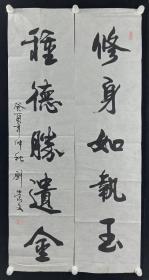 修身如執玉
種德勝遺金